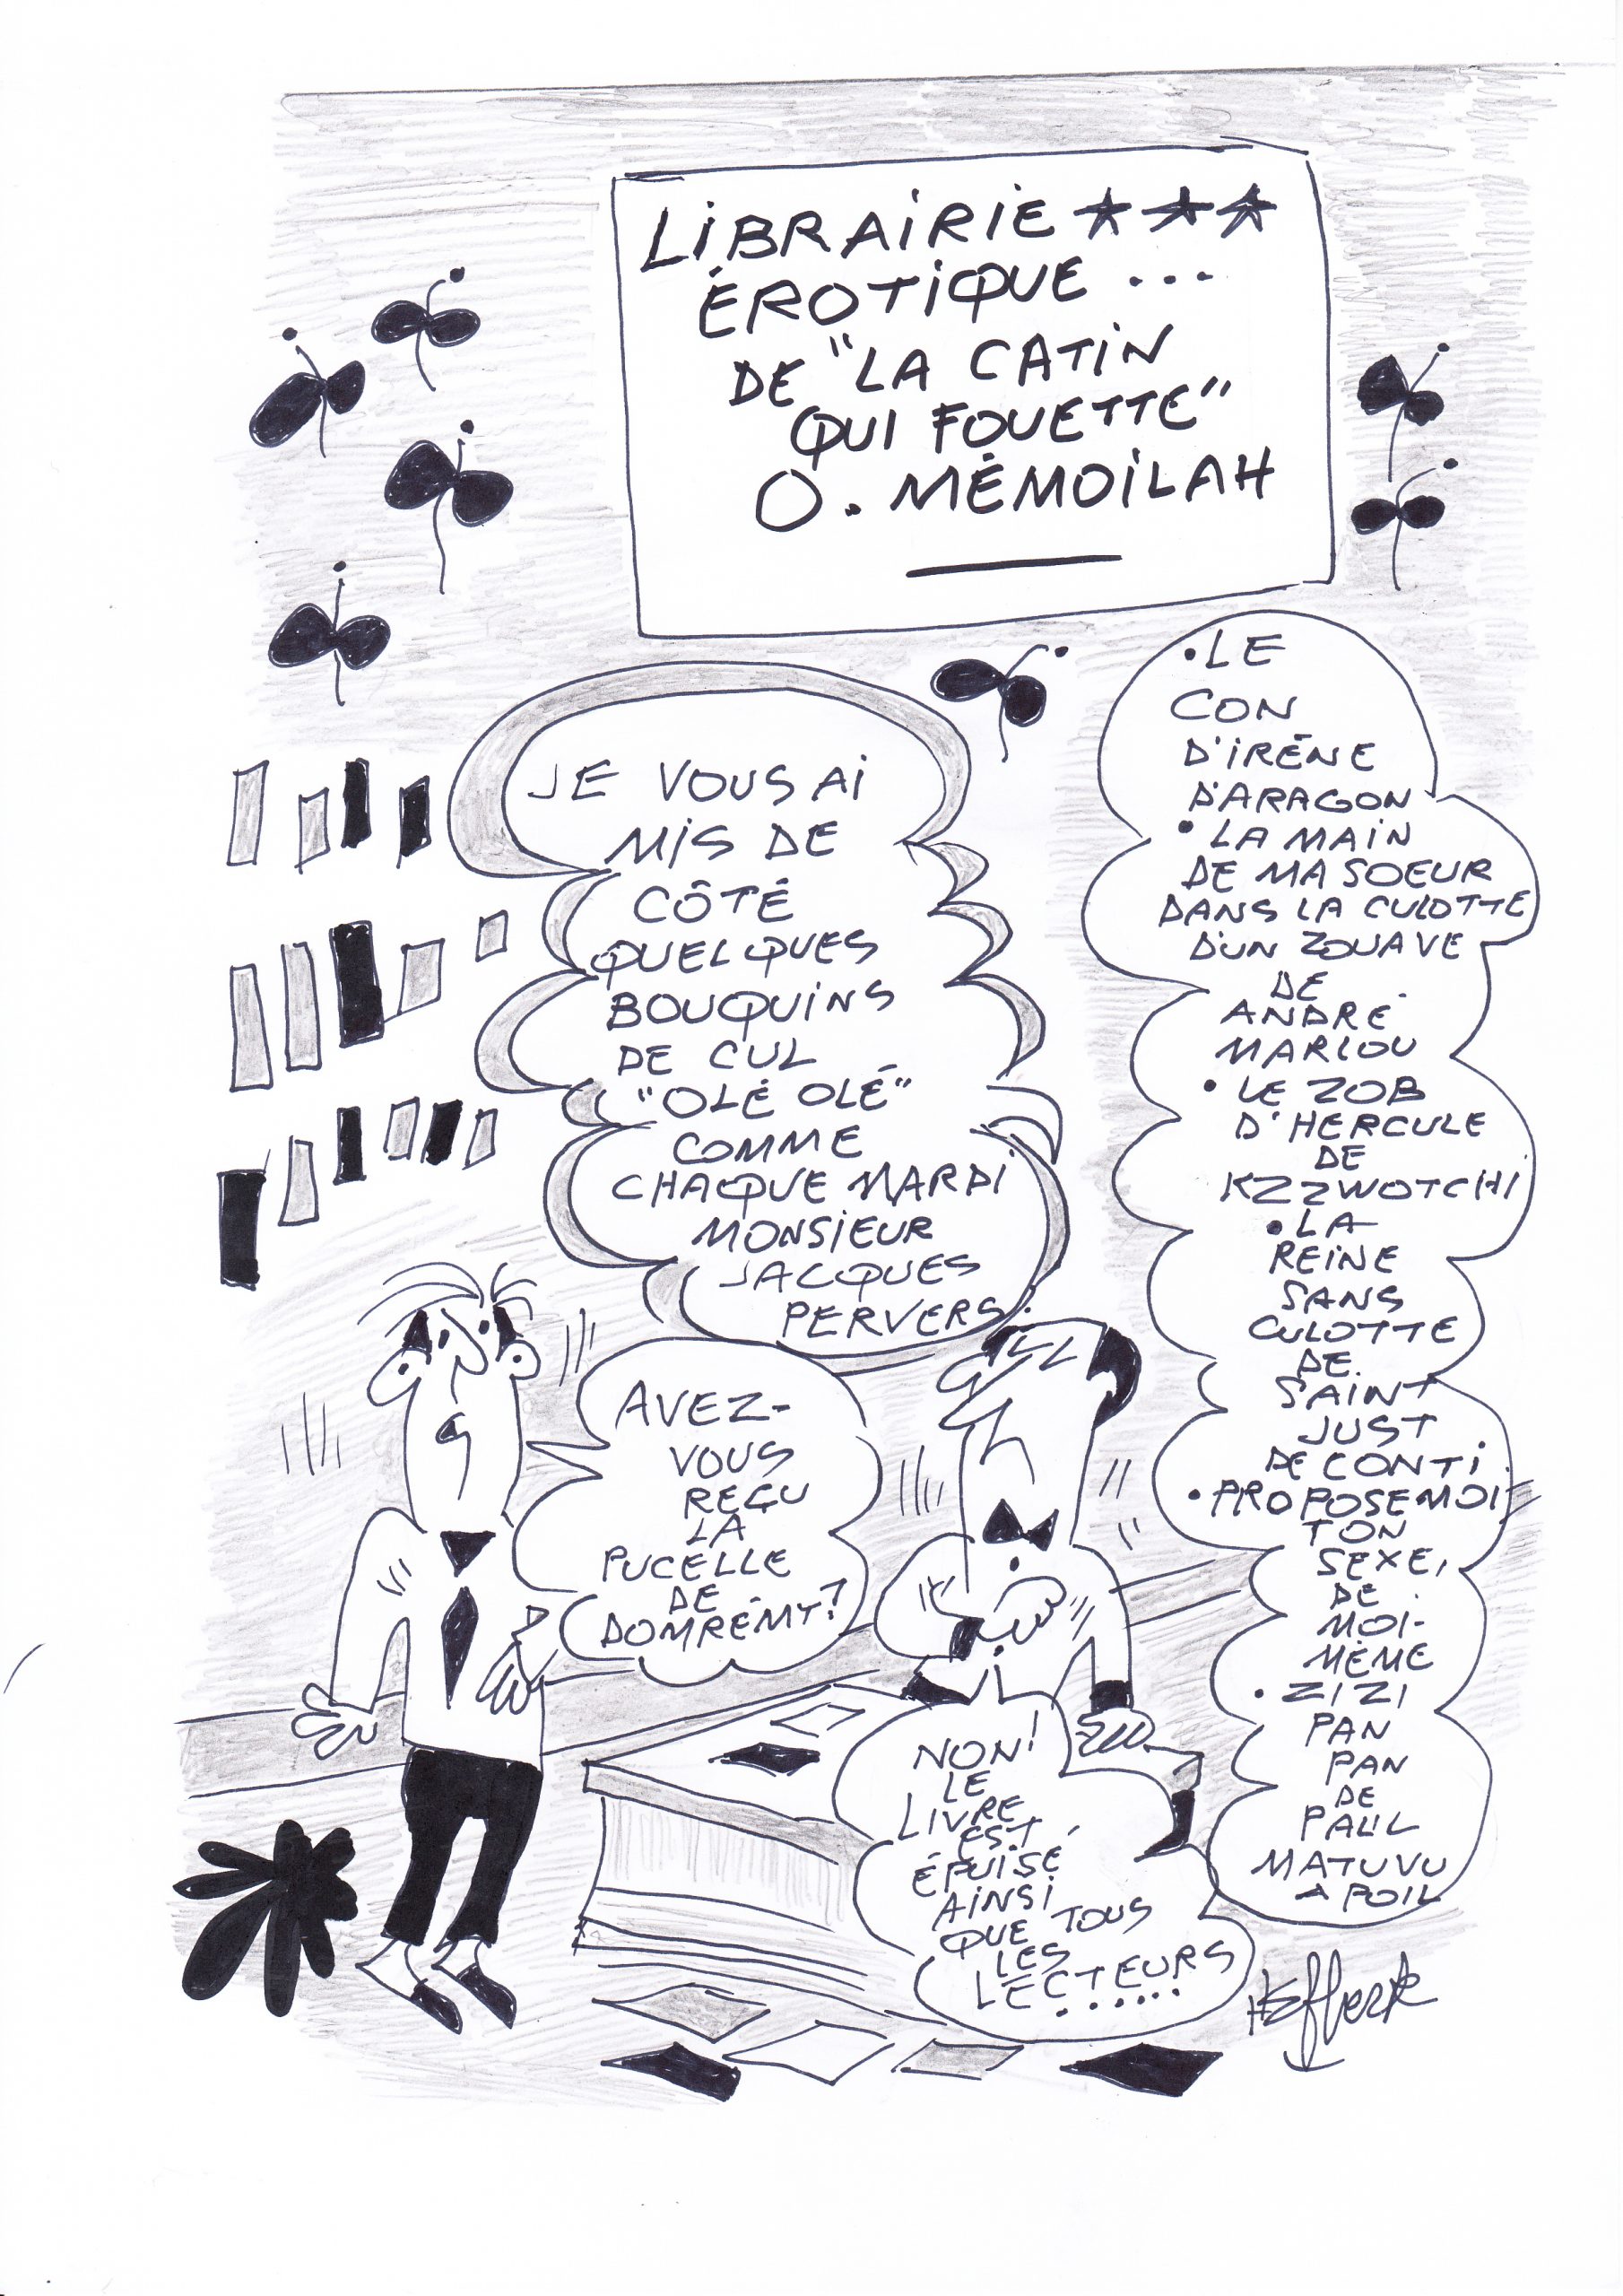 LiBRAiRiE ★★★
ÉROTiQUE ...
DE "LA CATiN
QUI FOUETTE"
O. MÉMOiLAH
JE VOUS Ai
MiS DE
CÔTÉ
QUELQUES
BOUQUiNS
DE CUL
"OLÉ OLÉ"
COMME
CHAQUE MARDi
MONSiEUR
JACQUES
PERVERS.
• LE
CON
D'iRÈNE
D'ARAGON
• LA MAiN
DE MA SOEUR
DANS LA CULOTTE
D'UN ZOUAVE
DE
ANDRÉ
MARLOU
• LE ZOB
D'HERCULE
DE
KZZWOTCHi
• LA
REiNE
SANS
CULOTTE
DE
SAiNT
JUST
DE CONTi
• PROPOSE MOI
TON
SEXE,
DE
MOI-
MÊME
• ZIZI
PAN
PAN
DE
PAUL
MATUVU
A POIL
AVEZ-
VOUS
REÇU
LA
PUCELLE
DE
DOMRÉMY?
NON!
LE
LIVRE
EST
ÉPUiSÉ
AiNSi
QUE TOUS
LES
LECTEURS
......